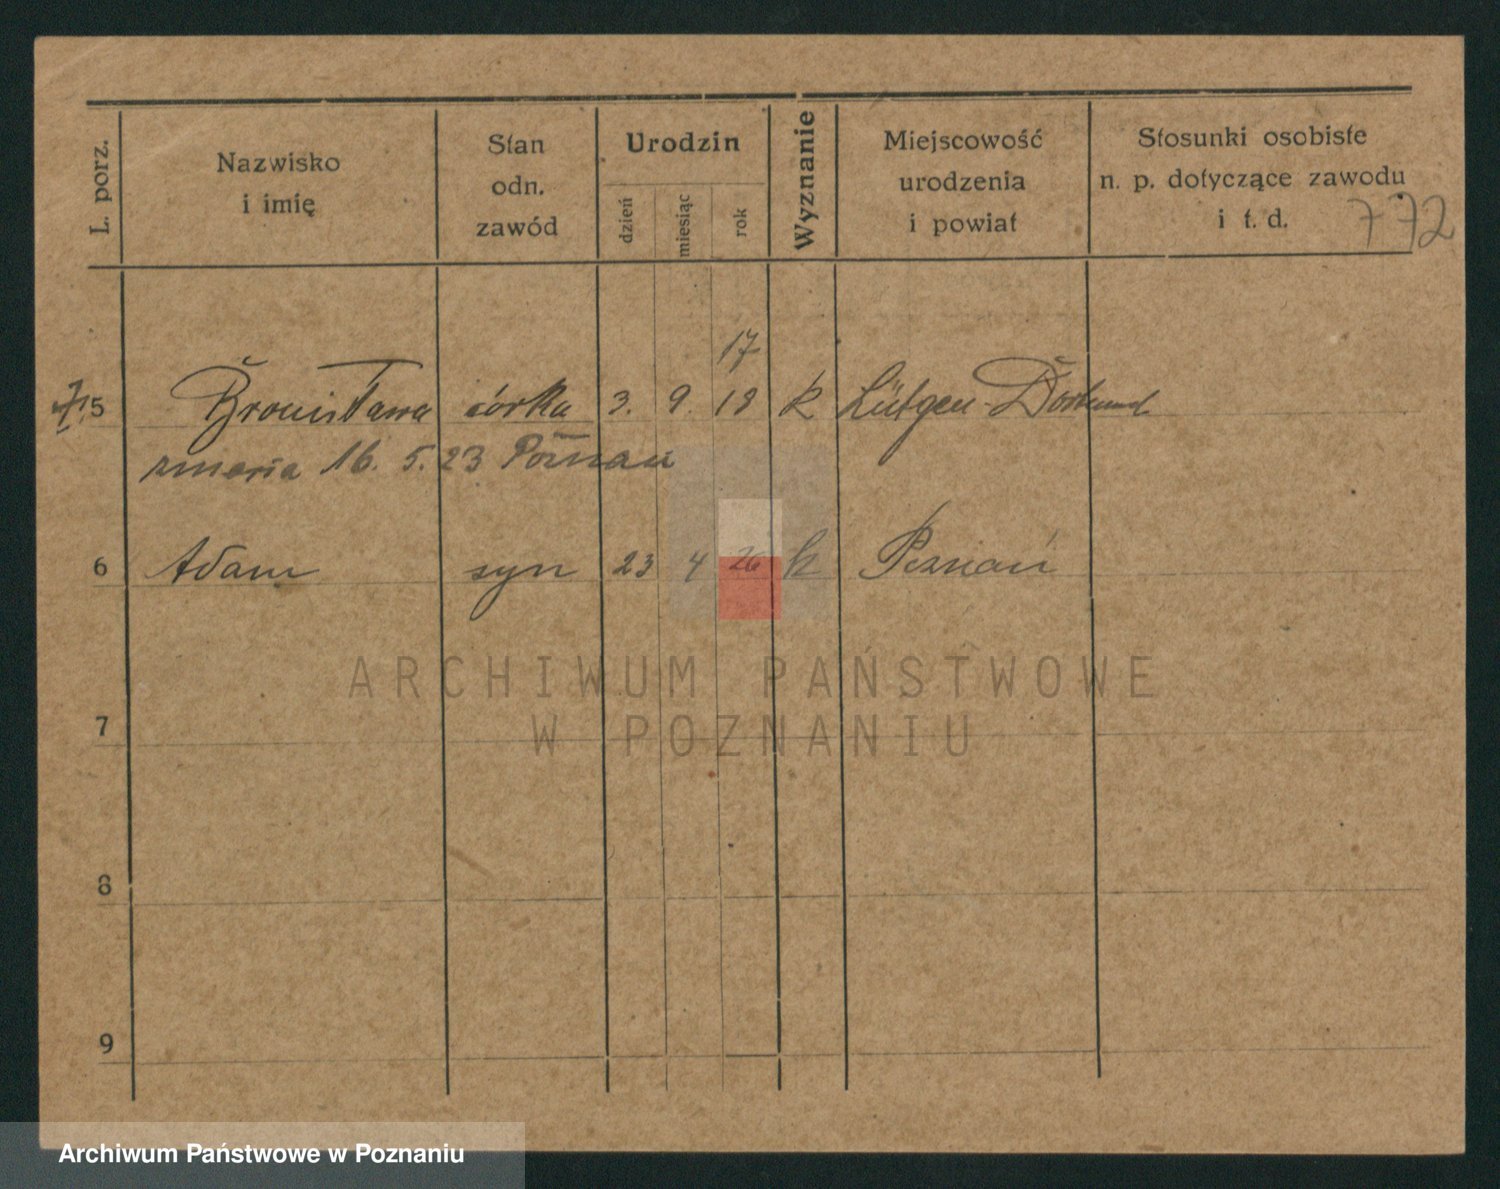 L. porz.
Nazwisko
i imię
Stan
odn.
zawód
Urodzin
dzień
miesiąc
rok
Wyznanie
Miejscowość
urodzenia
i powiat
Stosunki osobiste
n. p. dotyczące zawodu
i t. d.
772
17
5 Bronisława córka 3. 9. 18 k Lütgen-Dortmund
zmarła 16. 5. 23 Poznań
6 Adam syn 23 4 26 k Poznań
ARCHIWUM PAŃSTWOWE
W POZNANIU
7
8
9
Archiwum Państwowe w Poznaniu